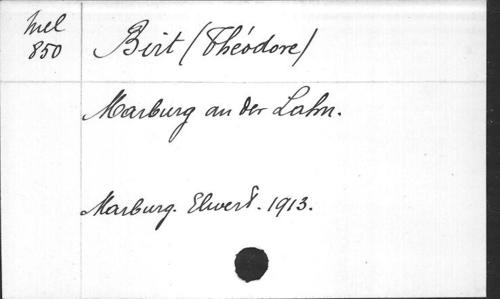 Mel
850
Birt (Théodore)
Marburg an der Lahn.
Marburg. Elwert. 1913.